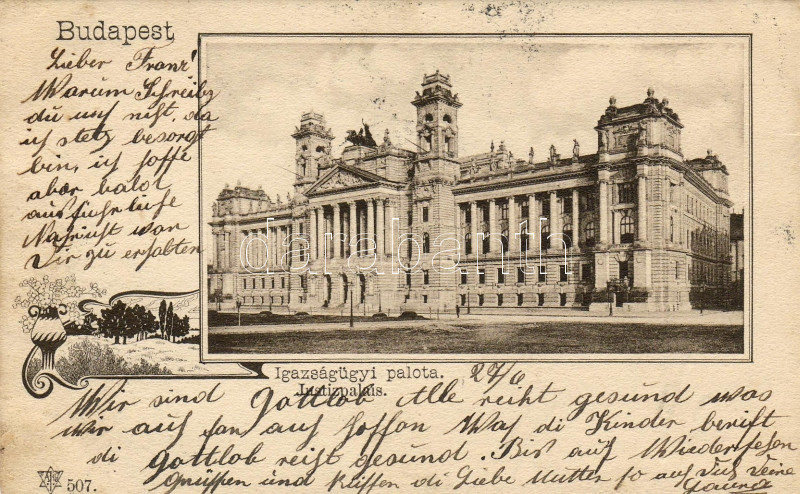 Budapest
Lieber Franz!
Warum Schreibz
du uns nist, da
ich stetz besorgt
bin, ich hoffe
aber balot
ausfuhrlihe
Nahricht von
Dir zu erhalten
darabanth
Igazságügyi palota. 27/6
Justizpalais.
Wir sind Gottlob Alle reiht gesund was
wir auf von auf hoffen Was di Kinder berift
di gottlob reiht gesund. Biß auf Wiedersehen
Gruppen und Küssen di Liebe Mutter so auf dich Deine
507.